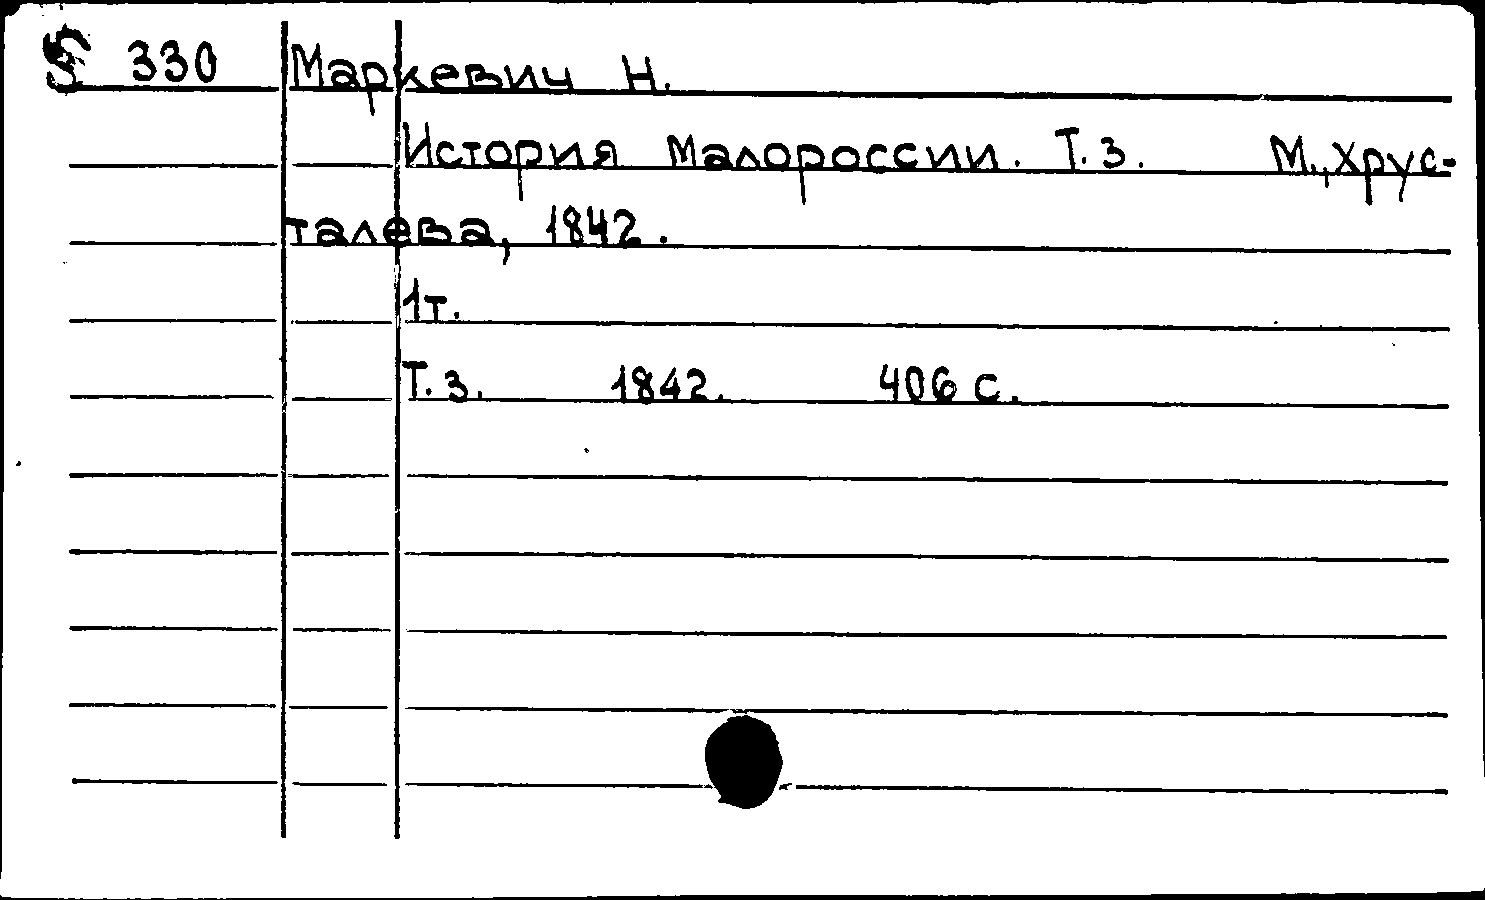 § 330 Маркевич Н.
История Малороссии. Т.3. М., Хрус-
талева, 1842.
1т.
Т.3. 1842. 406 с.